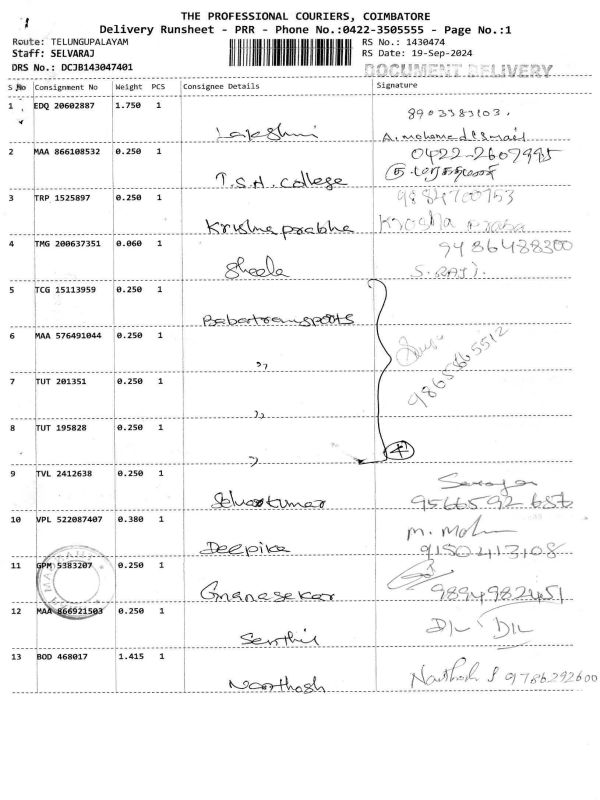 THE PROFESSIONAL COURIERS, COIMBATORE
Delivery Runsheet - PRR - Phone No.:0422-3505555 - Page No.:1
Route: TELUNGUPALAYAM RS No.: 1430474
Staff: SELVARAJ RS Date: 19-Sep-2024
DRS No.: DCJB143047401 DOCUMENT DELIVERY
S No Consignment No Weight PCS Consignee Details Signature
8903383103.
1 EDQ 20602887 1.750 1
Lakshmi A. Mohamed Ismail
2 MAA 866108532 0.250 1
T.S.A. College
3 TRP 1525897 0.250 1 9884700753
Krishna prabha
4 TMG 200637351 0.060 1 9486488300
Sheela S. RAJI.
5 TCG 15113959 0.250 1
6 MAA 576491044 0.250 1
,, 9865865512
7 TUT 201351 0.250 1
,,
8 TUT 195828 0.250 1
, 4
9 TVL 2412638 0.250 1
Selvarkumar
10 VPL 522087407 0.380 1 M. Moh
Deepika 9150413108
11 GPM 5383207 0.250 1
Gnanasekar 9894982451
12 MAA 866921503 0.250 1
Senthil
13 BOD 468017 1.415 1
Narthosh 9786292600